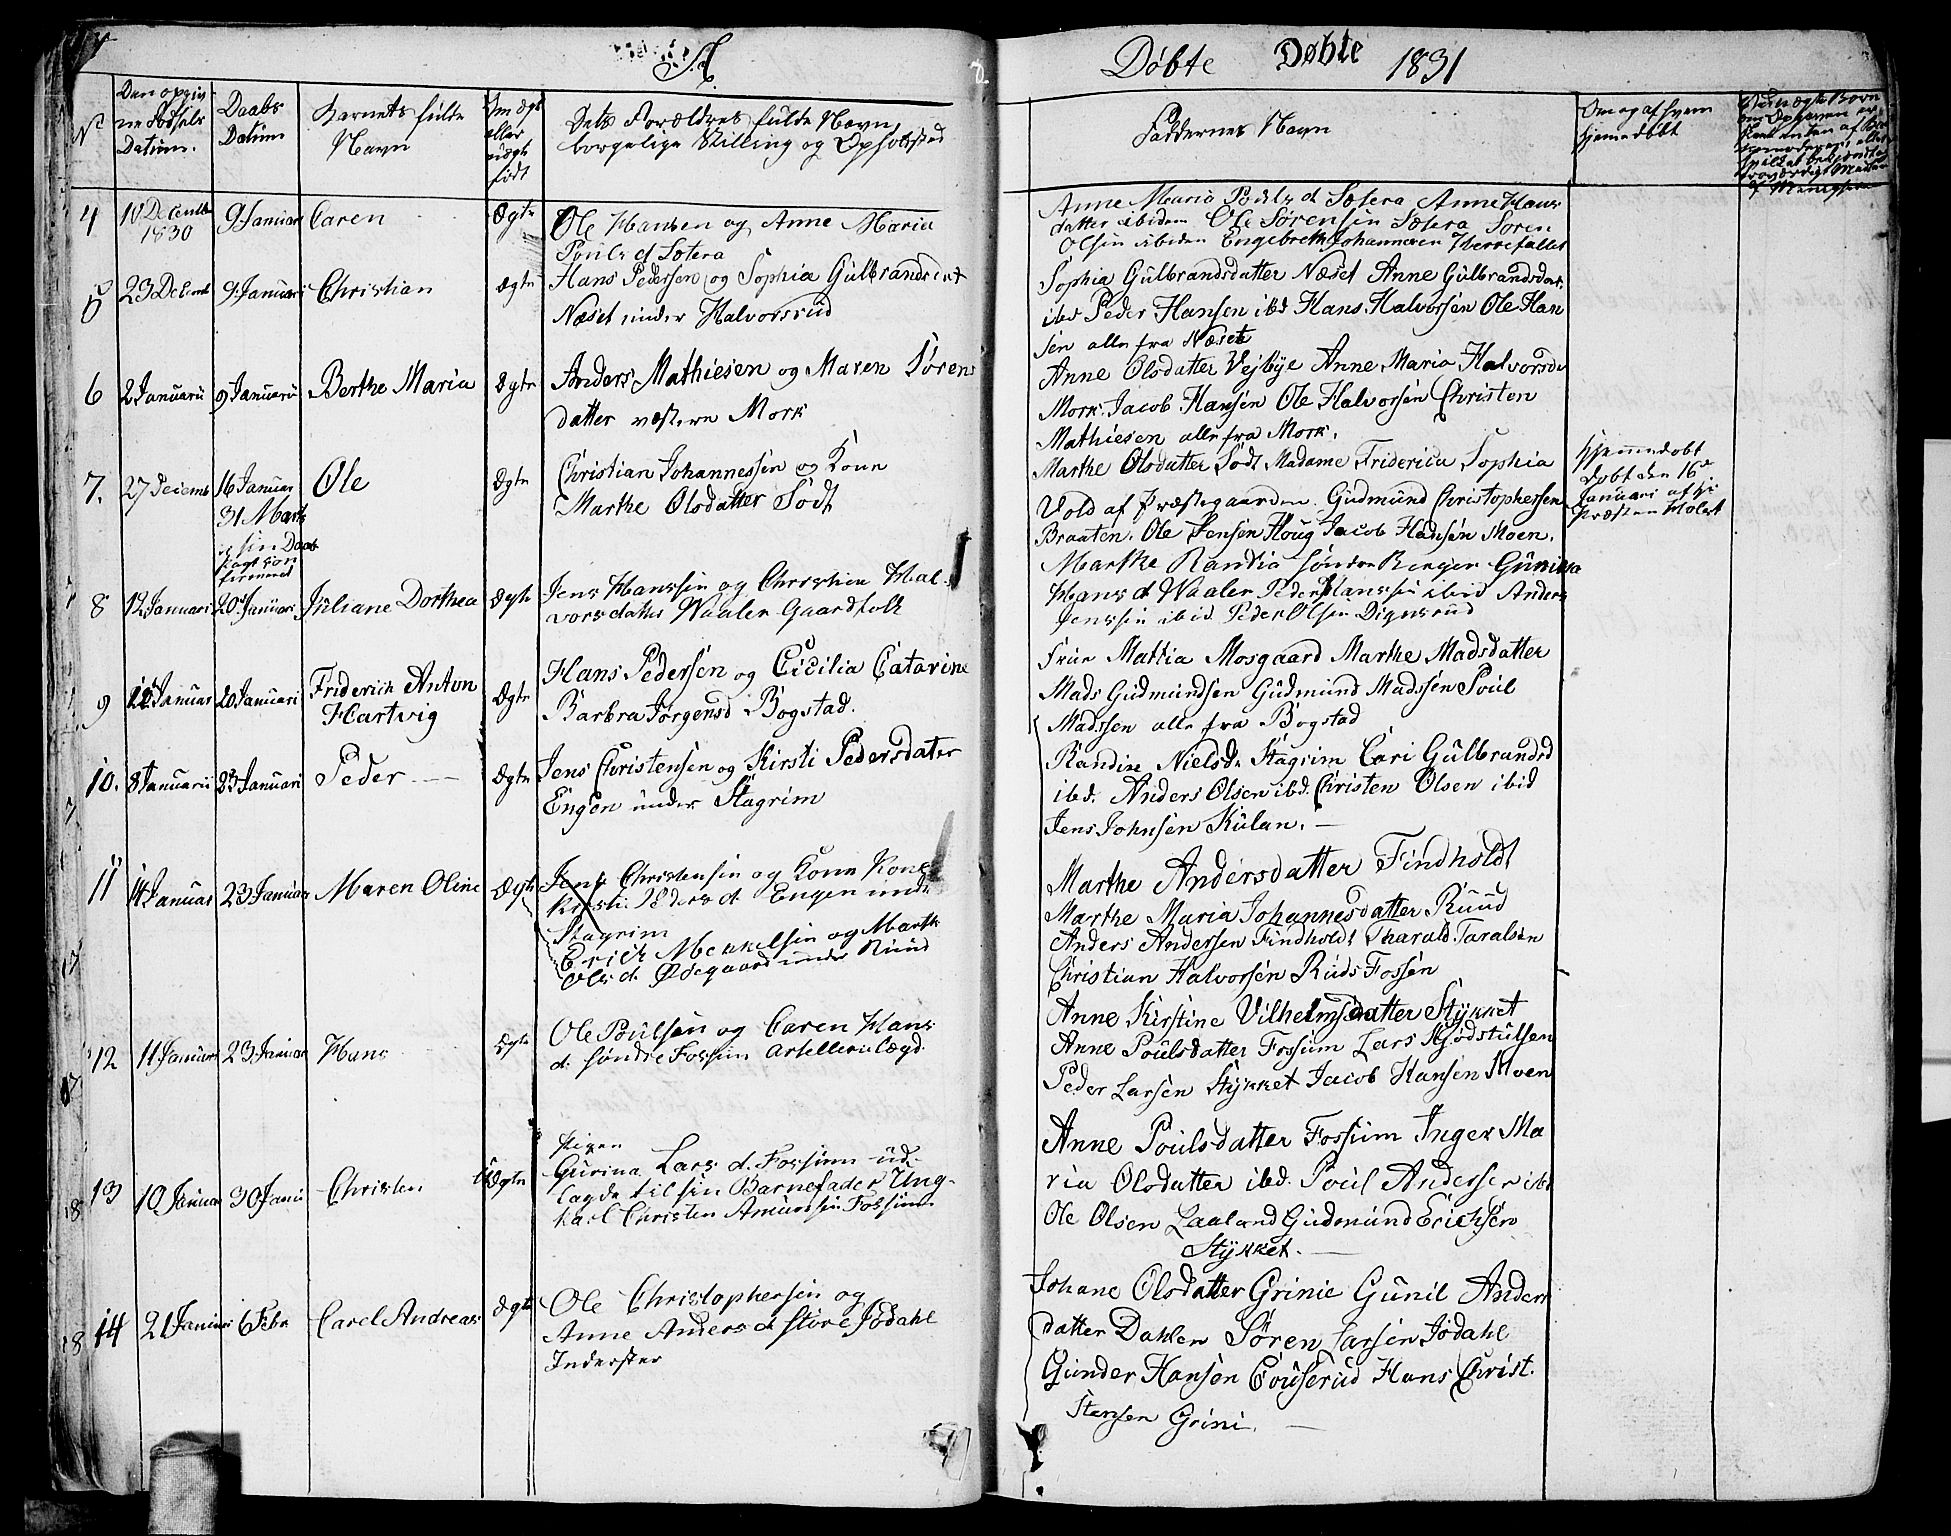 Døbte Døbte 1831
No
Den opgivne Fødsels Datum.
Daabs Datum
Barnets fulde Navn
Om ægte eller uægte født
Dets Forældres fulde Navn, borgelige Stilling og Opholdsted
Faddernes Navn
Om og af hvem hjemmedøbt
4 10 December 1830 9 Januar Caren Ægte
Ole Hansen og Anne Maria
Pouls d Sotera
Anne Maria Pouls d Sotera Anne Hans
datter ibidem Ole Sørensen Sotera Soren
Olsen ibidem Engebreth Johannesen
5 23 Decemb 9 Januari Christian ægte
Hans Pedersen og Sophia Gulbrandsdat
Næset under Halvorsrud
Sophia Gulbrandsdatter Næset Anne Gulbrandsdat.
ibd Peder Hansen ibd Hans Halvorsen Ole Han
sen alle fra Næset
6 2 Januarii 9 Januarii Berthe Maria Ægte
Anders Mathiesen og Maren Sørens
datter vestere Mork
Anne Olsdatter Vejbye Anne Maria Halvorsdr
Mork. Jacob Hansen Ole Halvorsen Christen
Mathiesen alle fra Mork.
7. 27 Decemb 16 Januar Ole Ægte
31 Marts
Christian Johannessen og Kone
Marthe Olsdatter Sødt
Marthe Olsdatter Sødt Madame Friderica Sophia
Vold af Præstegaarden. Gudmund Christophersen
Braaten. Ole Jensen Houg Jacob Hansen Moen.
hjemmedobt
dobt den 16de
Januari af
Præsten Holst
8 12 Januari 20 Januari Juliane Dorthea Ægte
Jens Hanssen og Christine Hal
vorsdatter Waaler Gaardfolk
Marthe Randia søndre Berger Gunilla
Hans d Waaler Peder Hanssen ibid Anders
Jenssen ibid. Peder Olsen Dignsrud
9 12 Januar 20 Januari Friderich Anton
Hartvig Ægte
Hans Pedersen og Cicilia Catarine
Barbra Jørgensd Bogstad.
Frue Mattia Mosgaard Marthe Madsdatter
Mads Gudmundsen Gudmund Madssen Poul
Madssen alle fra Bogstad
10. 8 Januarii 23 Januari Peder Ægte
Jens Christensen og Kirsti Pedersdater
Engen under Stagrim
Randine Nielsdr Stagrim Cari Gulbrandsd
ibd. Anders Olsen ibd. Christen Olsen ibid
Jens Johnsen Kulan.
11 14 Januar 23 Januar Maren Oline Ægte
Jens Christensen og Kone
Kirsti Peders d Engen under
Stagrim
Erich Mekkelsen og Marthe
Ols d. Ødegaard under Ruud
Marthe Andersdatter Findholdt
Marthe Maria Johannesdatter Ruud
Anders Andersen Findholdt Tharald Taralsen
Christian Halvorsen Ruds Fossen
12 11 Januar 23 Januar Hans Ægte
Ole Poulsen og Caren Hans
d. søndre Fossum Artellerilægd.
Anne Kirstine Vilhelmsdatter Stykket
Anne Poulsdatter Fossum Lars Kjodstulsen
Peder Larsen Stykket Jacob Hansen Moen
13 10 Januar 30 Janu Christen Uægte
Pigen
Gurina Lars d. Fossum ud-
lagde til sin Barnefader Ung-
karl Christen Amundsen Fossum
Anne Poulsdatter Fossum Inger Ma
ria Olsdatter ibd. Poul Andersen ibd
Ole Olsen Laaland Gudmund Erichsen
Stykket.
14 21 Januari 6 Febr Carel Andreas Ægte
Ole Christophersen og
Anne Anders d Store Jødahl
Inderster
Johane Olsdatter Grinie Gunil Anders
datter Dahlen Søren Larsen Jødahl
Gunder Hansen Couserud Hans Christ.
stensen Grini.